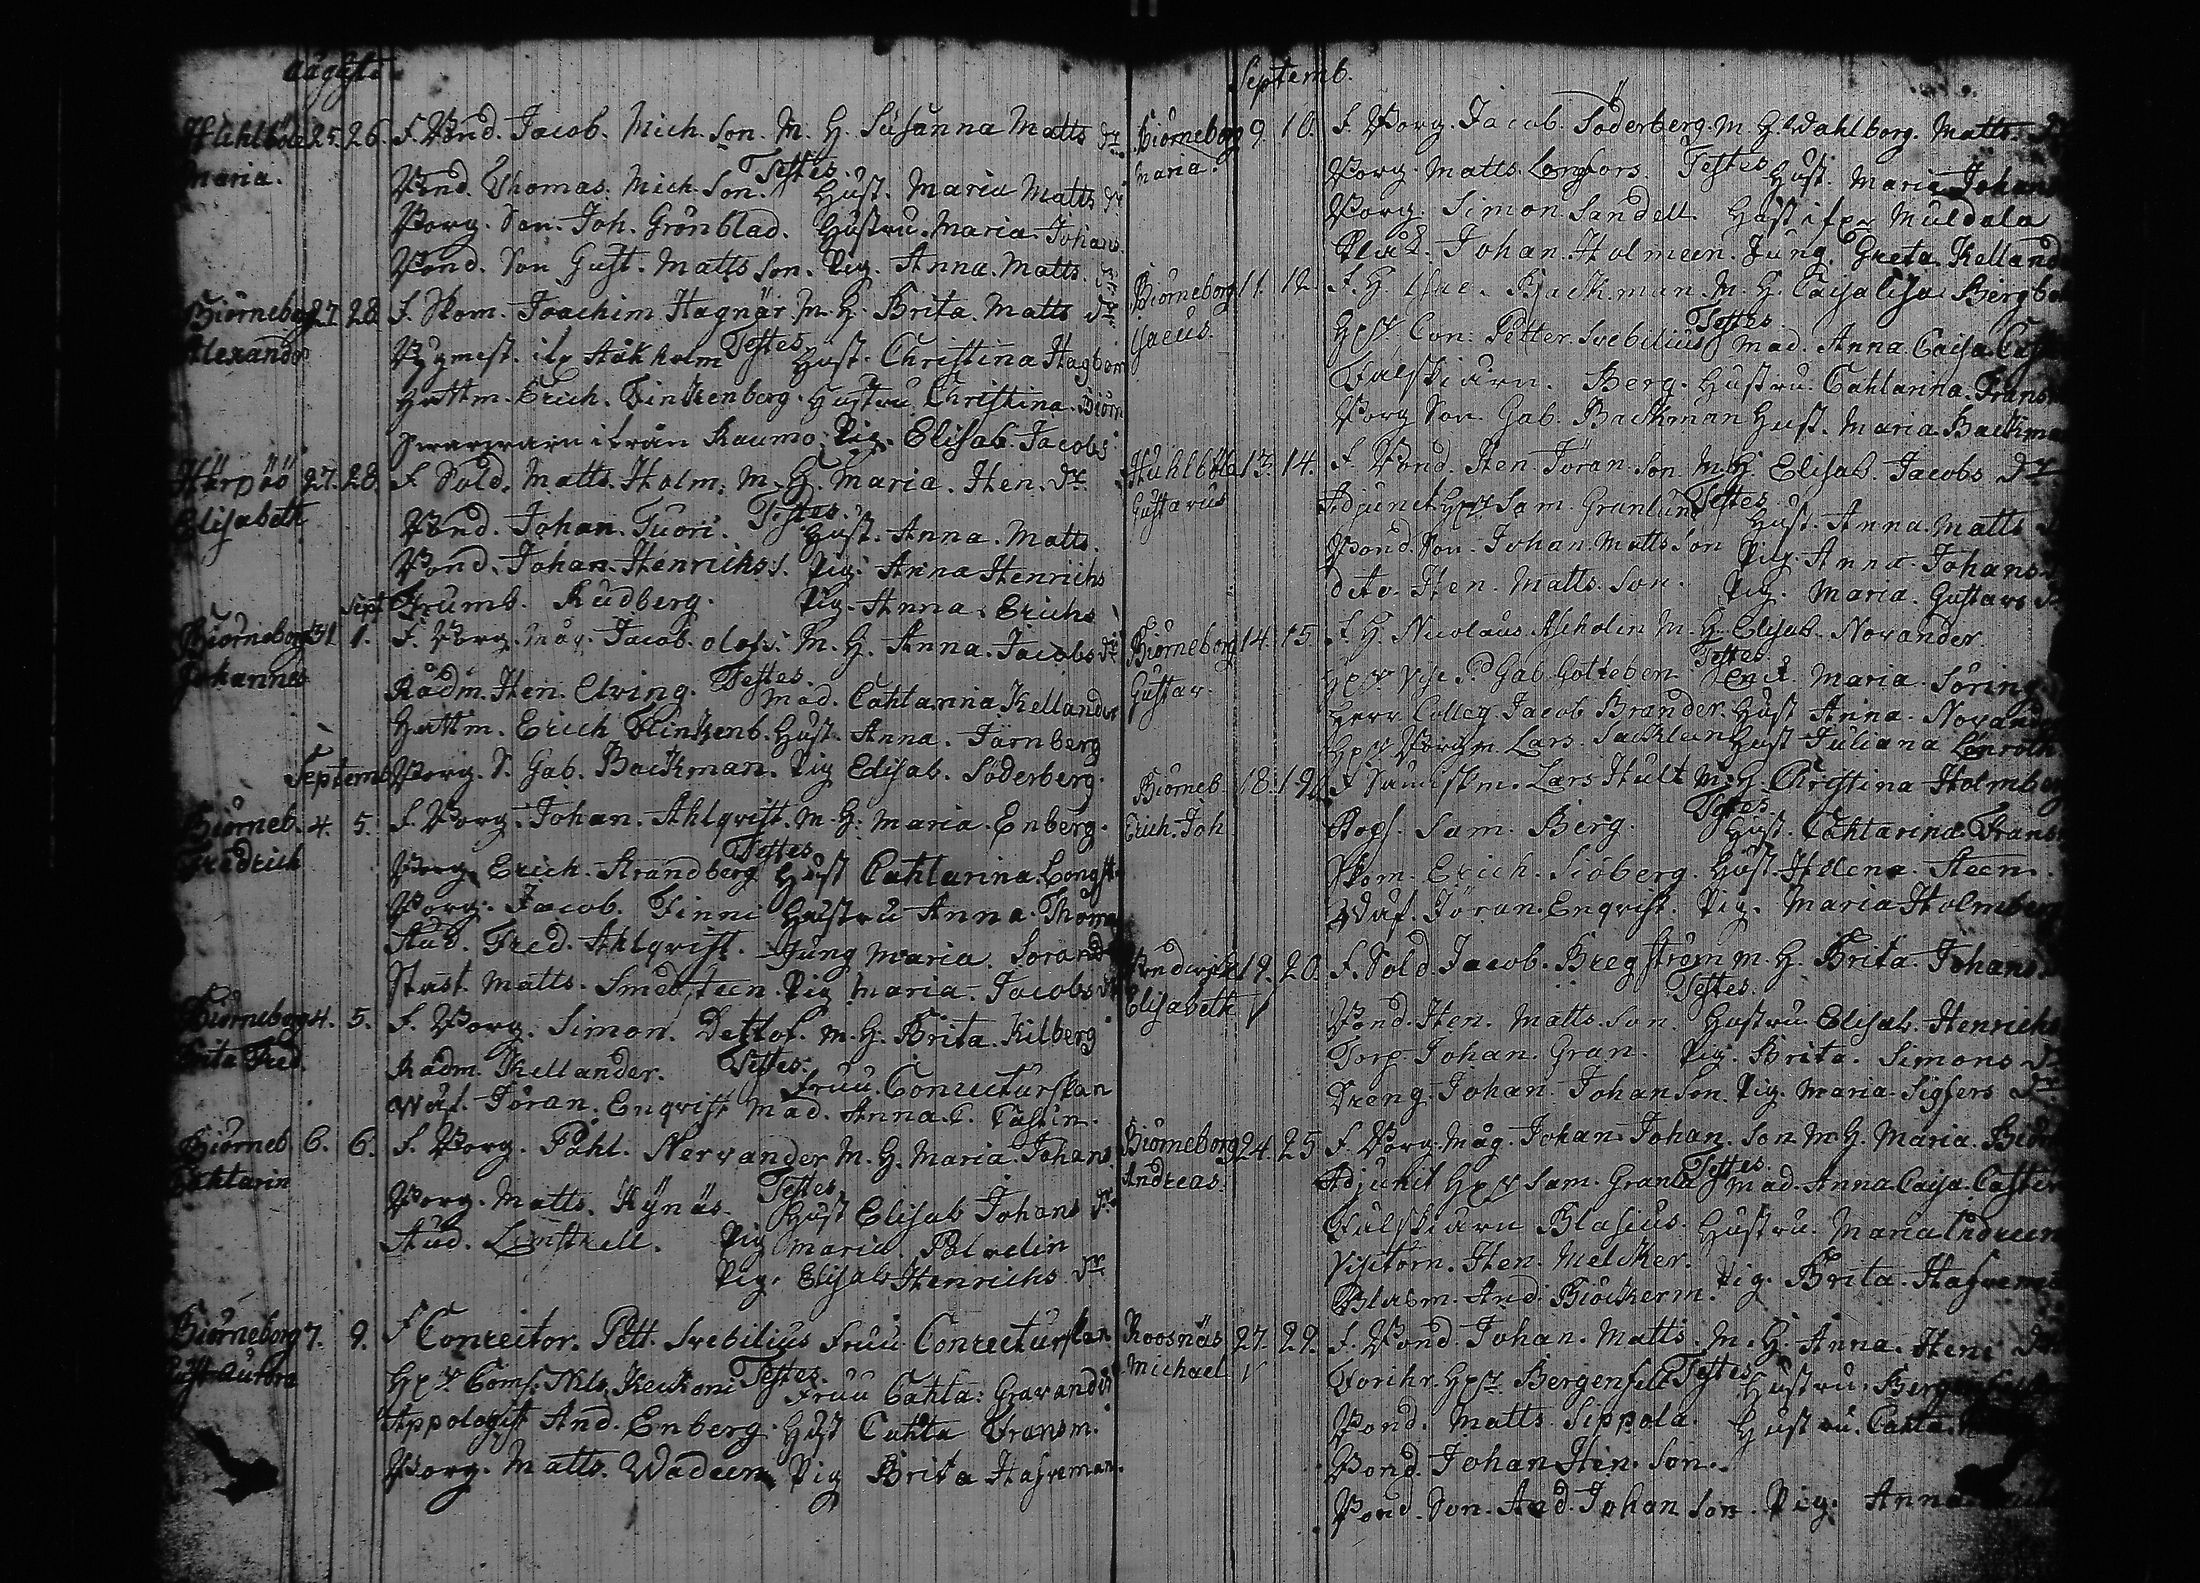 Augusti
Huhlböle 25. 26. F. Bond. Jacob. Mich. Son. M. H. Susanna Matts dr.
Maria. Testes.
Bond. Thomas. Mich. Son. Hust. Maria Matts dr
Borg. Son. Joh. Grönblad. Hustru. Maria. Johans.
Bond. Son Gust. Matts Son. Pig. Anna. Matts. dr
Biörneborg 27. 28. F. Skom. Joachim Hagnär M. H. Brita. Matts dr.
Alexander Testes
Hust. Christina Hagbom
Hattm. Erich. Finkenberg. Hustru Christina. Biörn
ifrån Raumo. Pig. Elisab. Jacobs
Härpöö 27. 28. F. Sold. Matts. Holm. M. H. Maria. Hen. dr.
Elisabeth Testes.
Bond. Johan. Tuori. Hust. Anna. Matts.
Bond. Johan. Henrichs S. Pig. Anna Henrichs
Sept. Trumb. Rudberg. Pig. Anna. Erichs
Biörneborg 31 1. F. Borg. Måg. Jacob. Olofs. M. H. Anna. Jacobs dr
Johannes Testes.
Rådm. Hen. Elving. Mad. Cahtarina Kellander
Hattm. Erich Flinkenb. Hust. Anna. Järnberg
Septemb. Borg. S. Gab. Backman. Pig Elisab. Söderberg.
Biörneb. 4. 5. F. Borg. Johan. Ahlqvist. M. H. Maria. Enberg.
Fredrich Testes
Borg. Erich. Strandberg Hust Cahtarina. Longst.
Borg. Jacob. Finni Hustru Anna. Thoma
Stud. Fred. Ahlqvist. Jung Maria. Sorand
Stust. Matts. Smedsteen. Pig Maria. Jacobs dr
Biörneborg 4. 5. F. Borg. Simon. Detlof. M. H. Brita. Kilberg
Brita Fred. Testes.
Rådm. Kellander. Fruu. Conrecturskan
Wäf. Jöran. Enqvist Mad. Anna. C. Castin.
Biörneb. 6. 6. F. Borg. Påhl. Nervander M. H. Maria. Johans.
Cahtarin Testes
Borg. Matts. Kynäs. Hust Elisab Johans dr
Stud. Limstrell. Pig Maria. Palvelin
Pig. Elisab Henrichs dr
Biörneborg 7. 9. F Conrector. Pett. Svebilius Fruu Conrecturskan
Aurora Testes.
Hr Coms. Nils. Keckoni Fruu Cahta: Gravander
Appologist And. Enberg. Hust Cahta Fransm.
Borg. Matts. Wadeen Pig Brita Hasveman.
Septemb.
Biörneborg 9. 10. F. Borg. Jacob. Söderberg. M. H. Wahlborg. Matts. dr
Maria.
Borg. Matts. Longfors. Testes Hust. Maria Johans
Borg. Simon. Sandell. Muldala
Stud. Johan. Holmeen. Jung. Greta. Kelland
Biörneborg 11. 12. F. H. Isac. Backman M. H. Caisa Lisa Bergbom
Isacus. Testes
Hr Con. Petter. Svebilius Mad. Anna. Caisa. Cast
Fälskiärn. Berg. Hustru. Cahtarina. Fransm
Borg Son Gab. Backman Hust. Maria. Backman
Huhlböle 13. 14. F. Bond. Hen. Jöran. Son. M. H. Elisab. Jacobs dr
Gustavus Testes
Adjunct Hr Sam. Granlund Hust. Anna. Matts
Bond. Son. Johan. Matts Son Pig. Anna. Johans
dito. Hen. Matts. Son. Pig. Maria. Gustavs
Biörneborg 14. 15. F. H. Nicolaus. Ascholin M. H. Elisab. Novander
Gustav. Testes.
Gab. Gotleben. Maria. Söring
Herr. Colleg. Jacob Brander. Hust Anna. Novander
Hr Borgm. Lars. Sacklun Hust Juliana Lönroth
Biörneb. 18. 19. F Lars Hult M. H. Christina Holmberg
Erich. Joh. Testes.
Sam. Berg. Hust. Cahtarina Fransm
Skom. Erich. Siöberg. Hust. Helena. Steen.
Wäf. Jöran. Enqvist. Pig. Maria Holmberg
19. 20. F. Sold Jacob. Bregström M. H. Brita. Johans
Elisabeth Testes.
Bond. Hen. Matts. Son. Hustru Elisab. Henrichs
Torp. Johan. Gran. Pig. Brita. Simons dr
Dreng. Johan. Johan Son. Pig. Maria. Sigfers dr
Biörneborg 24. 25 F. Borg. Måg. Johan. Johan. Son M. H. Maria. Biör
Andreas. Testes.
Adjunct Hr Sam. Granl Mad. Anna Caisa. Caster
Fälskiärn Blasius. Hustru. Maria Lidreen
Visitorn. Hen. Melcker.
And. Biöckerm. Pig. Brita. Hasveman
Roosnäs 27. 29. F. Bond. Johan. Matts. M. H. Anna. Henr dr
Michael Testes
Hr Bergenfelt Hustru. Bergenfelt
Bond. Matts Sippola. Hustru. Cahta.
Bond. Johan Hen. Son.
Bond. Son. And. Johan Son. Pig. Anna